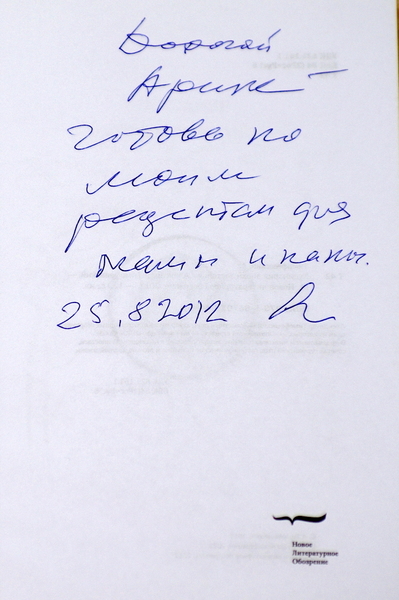 Дорогой
Арине –
готовь по
моим
рецептам для
мамы и папы.
25.8 2012
Новое
Литературное
Обозрение